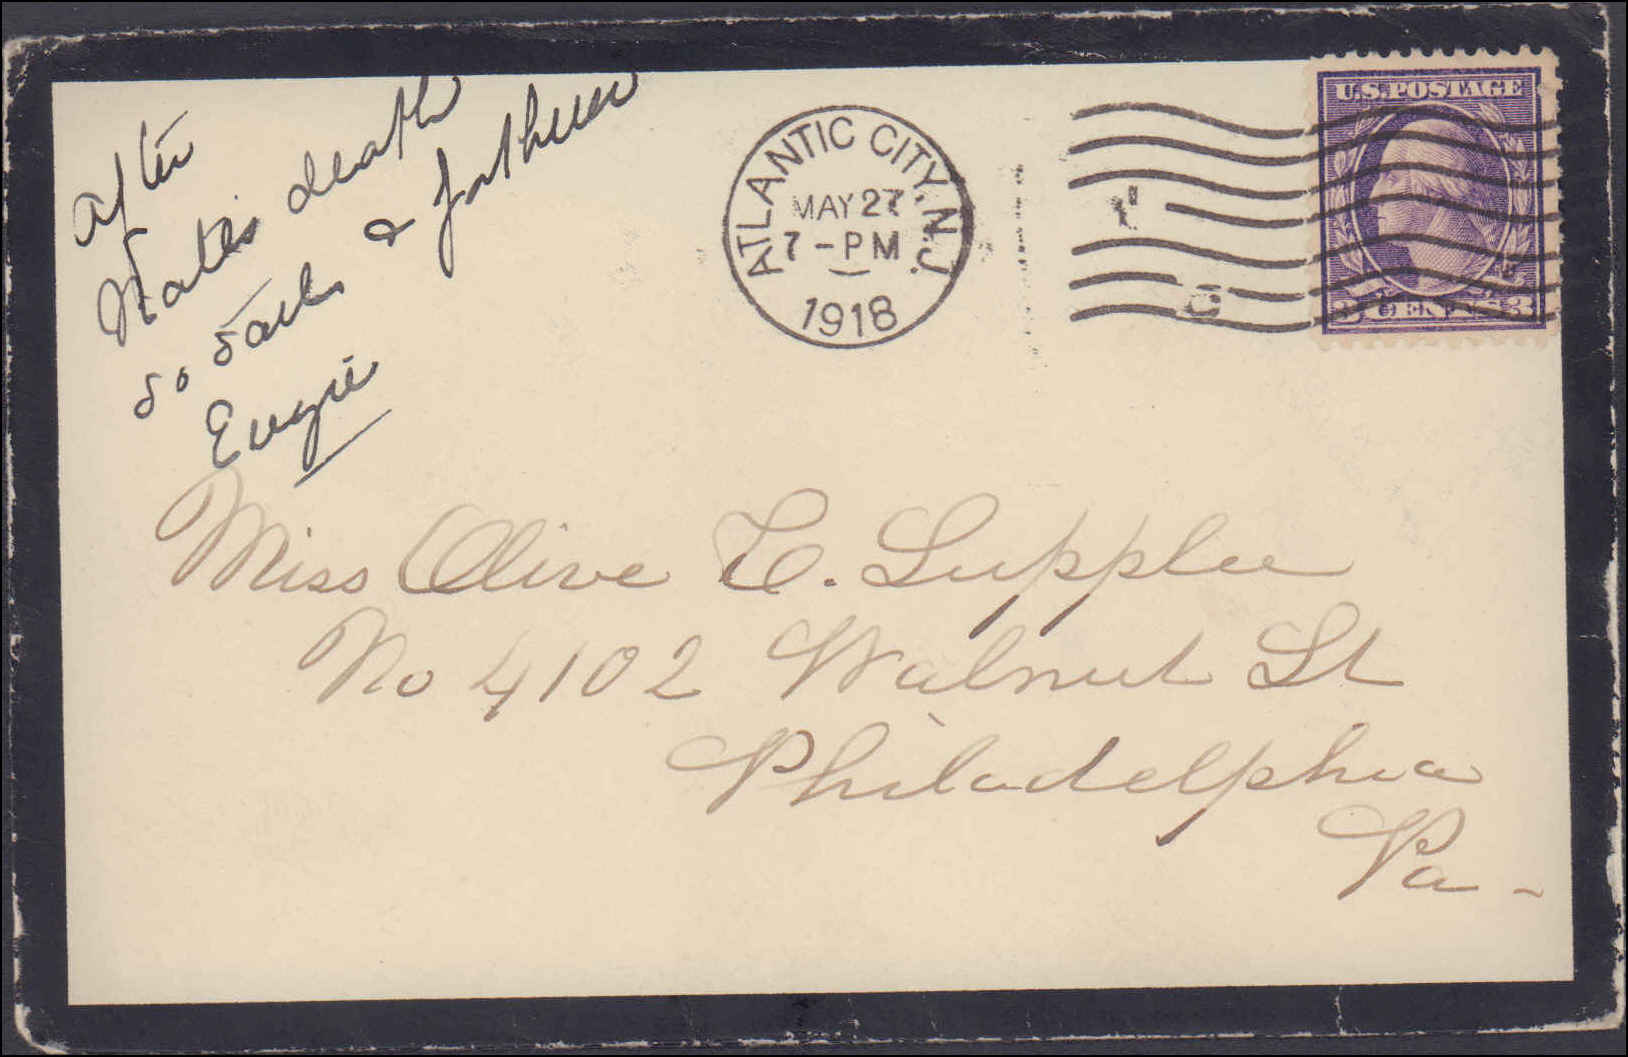 After
Kate's death
so
&
Eugie
ATLANTIC CITY, N.J.
MAY 27
7-PM
1918
U.S. POSTAGE
3 CENTS 3
Miss Olive E. Supplee
No 4102 Walnut St
Philadelphia
Pa -